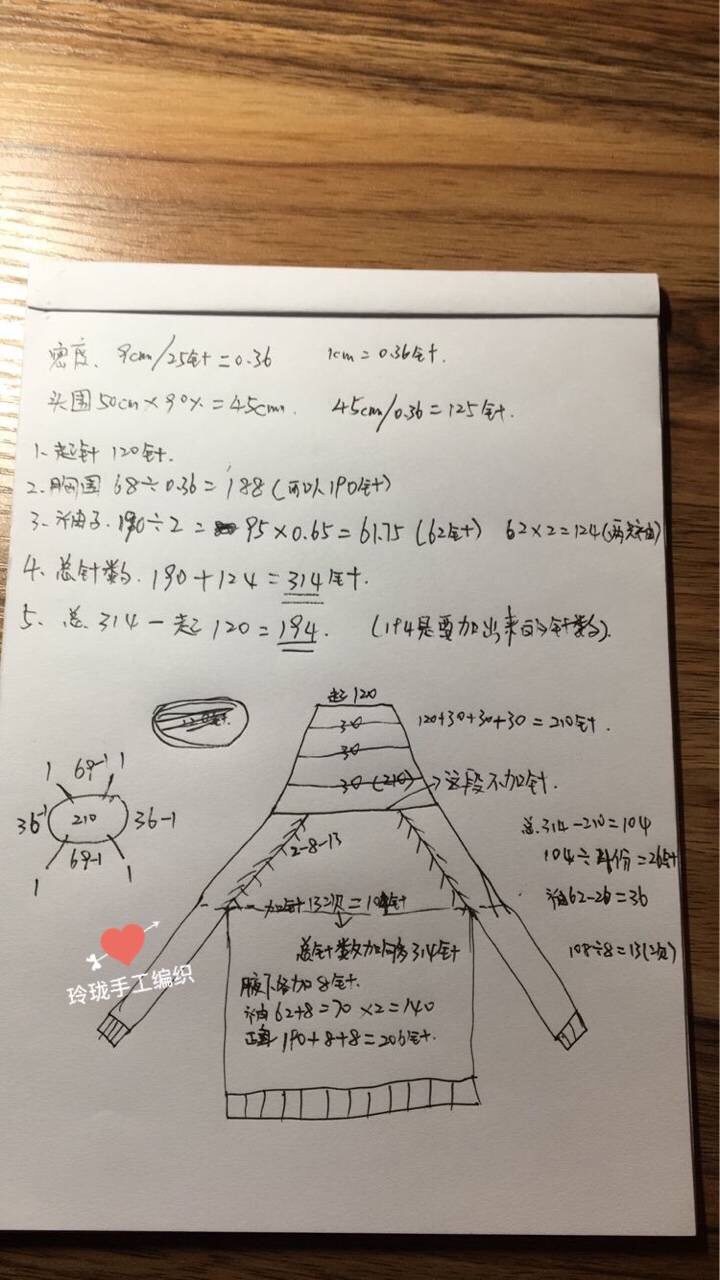 密度、9cm/25针=0.36 1cm=0.36针.
头围50cm×90%=45cm. 45cm/0.36=125针.
1、起针120针.
2、胸围 68÷0.36=188(可以190针)
3、袖子.190÷2= 95×0.65=61.75(62针) 62×2=124(两只袖)
4、总针数.190+124=314针.
5、总.314-起120=194. (194是要加出来的针数).
起120
30
30
30(210)
120+30+30+30=210针.
这段不加针.
1 69-1 1
36-1 210 36-1
69-1
1 1
2-8-13
总314-210=104
104÷4份=26针
袖62-26=36
加针13次=104针
总针数加间为314针
108÷8=13(次)
腋下各加8针.
袖62+8=70×2=140
正身190+8+8=206针.
玲珑手工编织